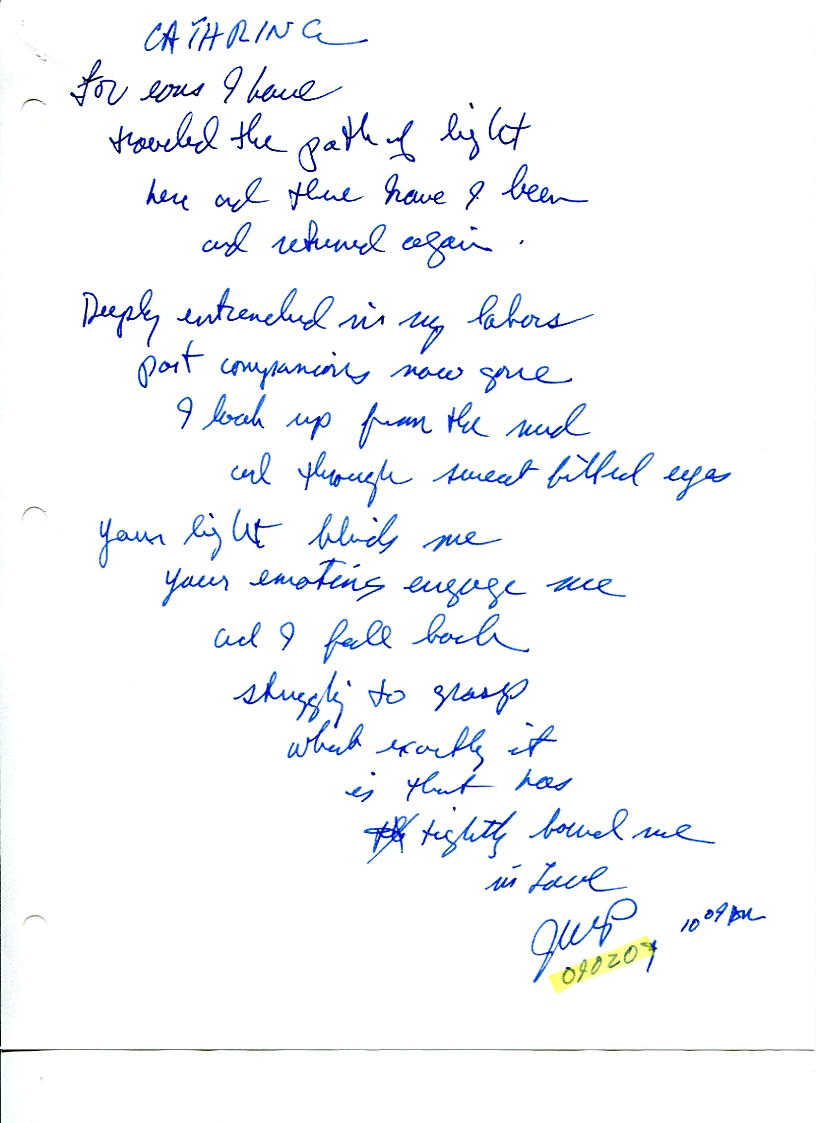 CATHRING
For eons I have
traveled the path of light
here and there have I been
and returned again.
Deeply entrenched in my labors
past companions now gone
I look up from the mud
and through sweat filled eyes
your light blinds me
your emotions engage me
and I fall back
struggling to grasp
what exactly it
is that has
tightly bound me
in Love
JWP
10 09 PM
090204